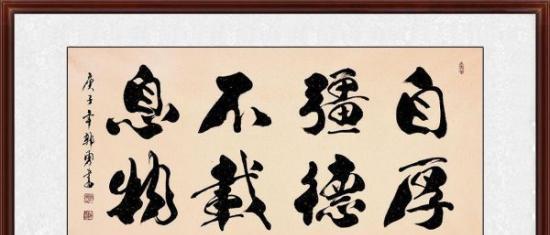 自彊不息
厚德載物
庚子年韩勇书